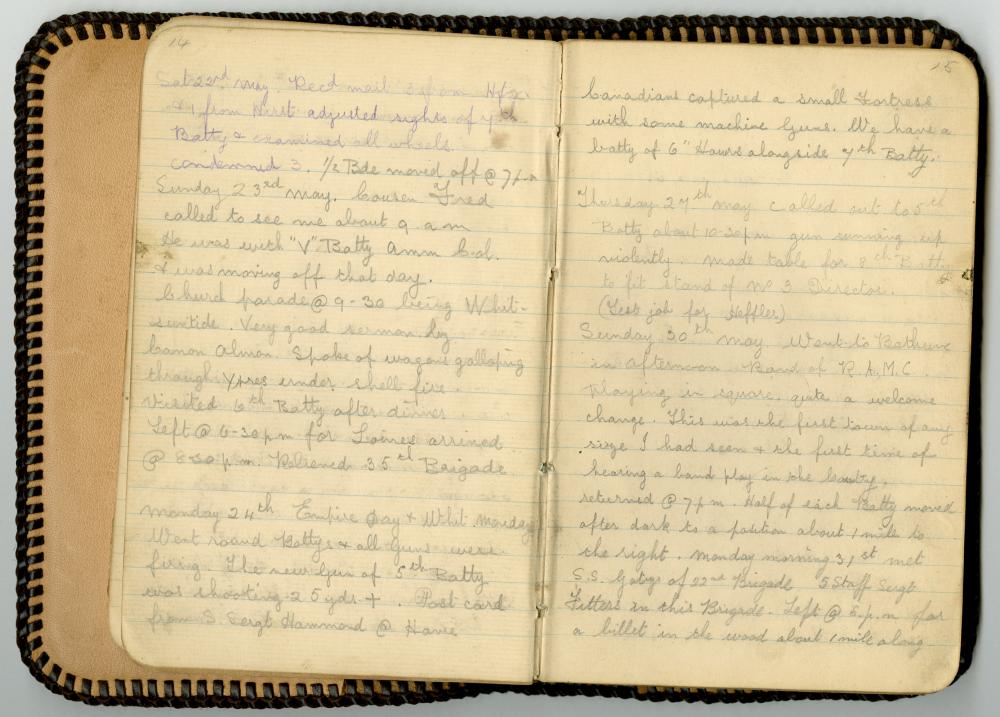 14
Sat 22nd May. Recd mail 3 from Hfx.
& 1 from Hurst adjusted sights of 7th
Batty & examined all wheels.
condemned 3. 1/2 Bde moved off @ 7 p.m
Sunday 23rd May. Cousen Fred
called to see me about 9 a.m
He was with "V" Batty Amm Col.
& was moving off that day.
Church parade @ 9-30 being Whit-
suntide. Very good sermon by
Canon Almon. Spoke of wagons galloping
through Ypres under shell fire.
Visited 6th Batty after dinner.
Left @ 6-30 pm for Loines arrived
@ 8-30 p.m. Relieved 35th Brigade
Monday 24th Empire Day & Whit. Monday
Went round Battys & all Guns were
firing. The new Gun of 5th Batty
was shooting 25 yds +. Post card
from S. Sergt Hammond @ Havre
15
Canadians captured a small Fortress
with some machine Guns. We have a
batty of 6" Hows alongside 7th Batty.
Thursday 27th May called out to 5th
Batty about 10-30 pm gun running up
violently. Made table for 8th Batty
to fit stand of No 3 Director.
(Test job for Heffler)
Sunday 30th May. Went to Bethune
in afternoon. Band of R.A.M.C.
playing in square, quite a welcome
change. This was the first town of any
size I had seen & the first time of
hearing a band play in the country,
returned @ 7 p.m. Half of each Batty moved
after dark to a position about 1 mile to
the right. Monday morning 31st met
S.S. of 22nd Brigade 5 Staff Sergt
Fitters in this Brigade. Left @ 5 p.m for
a billet in the wood about 1 mile along